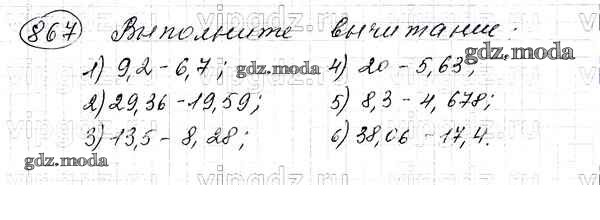 867 Выполните вычитание:
gdz.moda
1) 9,2 - 6,7; gdz.moda 4) 20 - 5,63;
2) 29,36 - 19,59; 5) 8,3 - 4,678;
3) 13,5 - 8,28; 6) 38,06 - 17,4.
gdz.moda